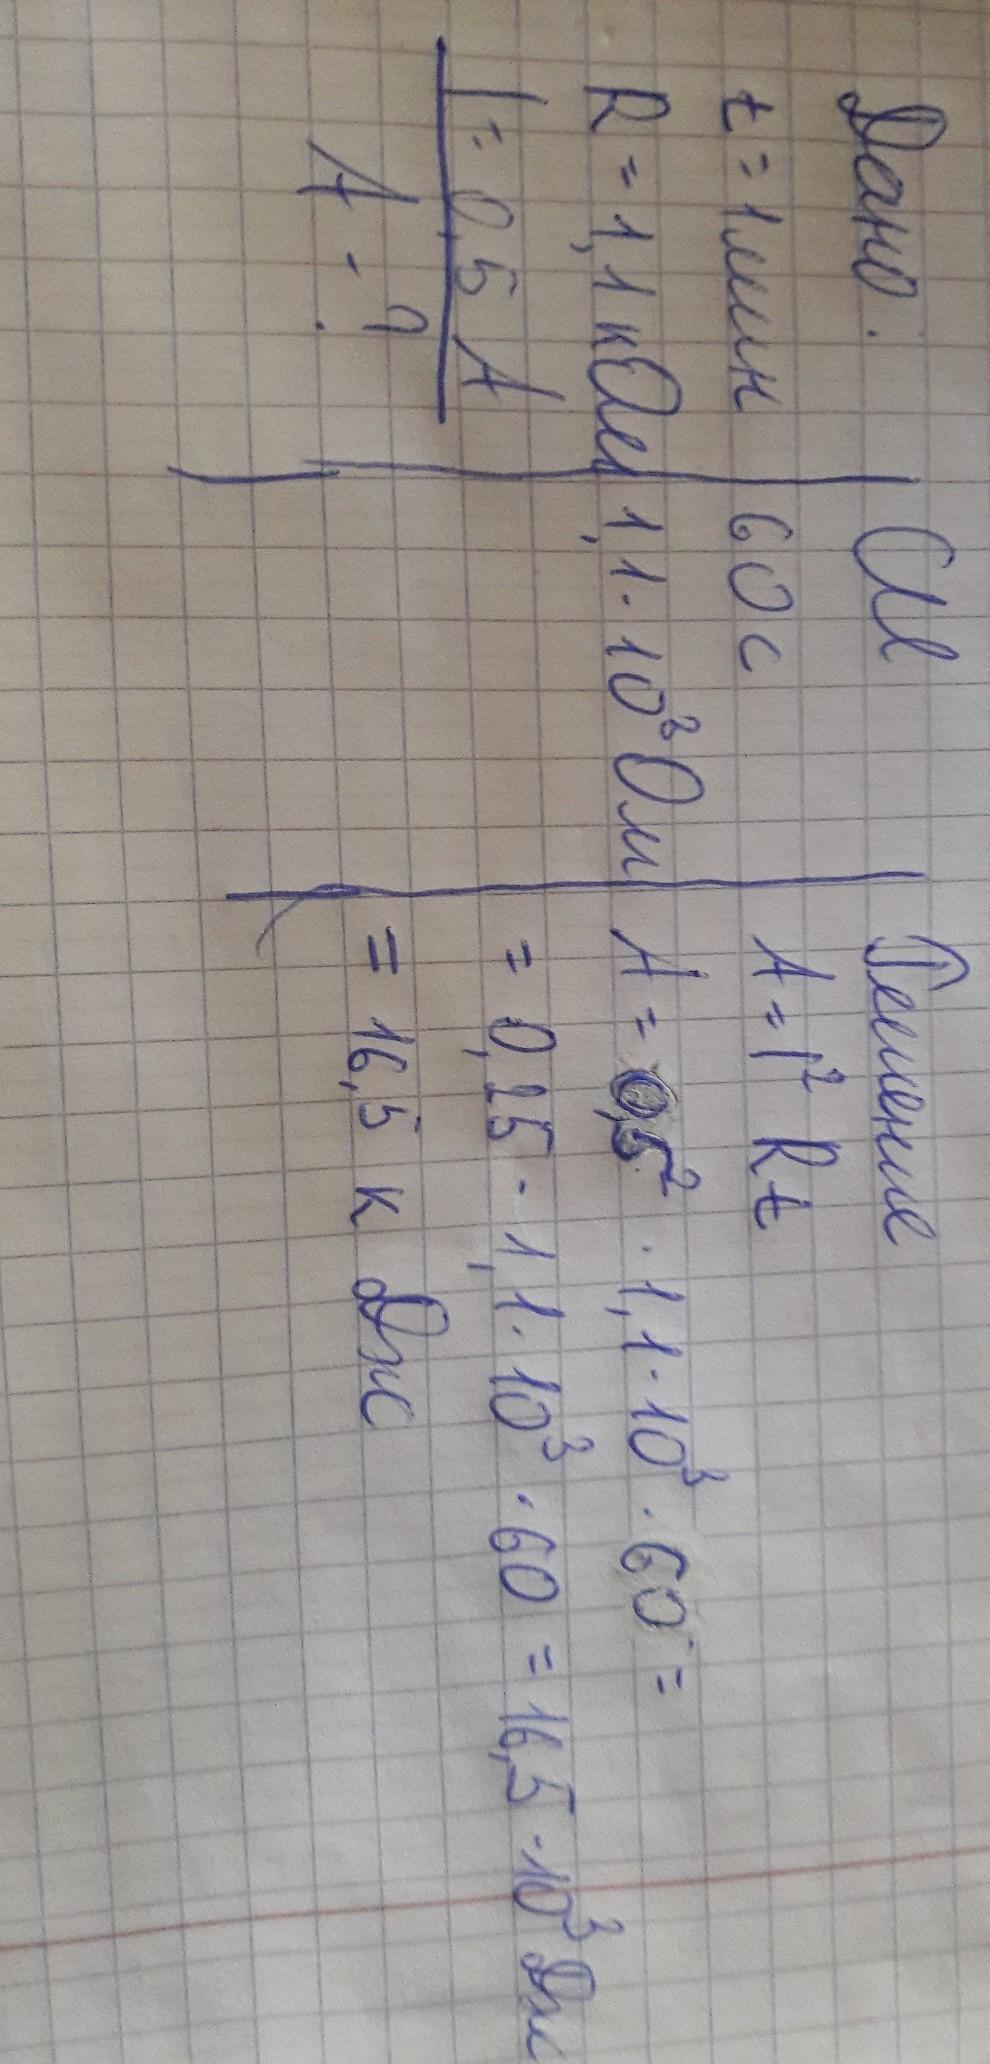 Дано:
t = 1 мин
R = 1,1 кОм
I = 0,5 А
А - ?
СИ
60 с
1,1 · 10³ Ом
Решение
A = I² Rt
A = 0,5² · 1,1 · 10³ · 60 =
= 0,25 · 1,1 · 10³ · 60 = 16,5 · 10³ Дж
= 16,5 к Дж